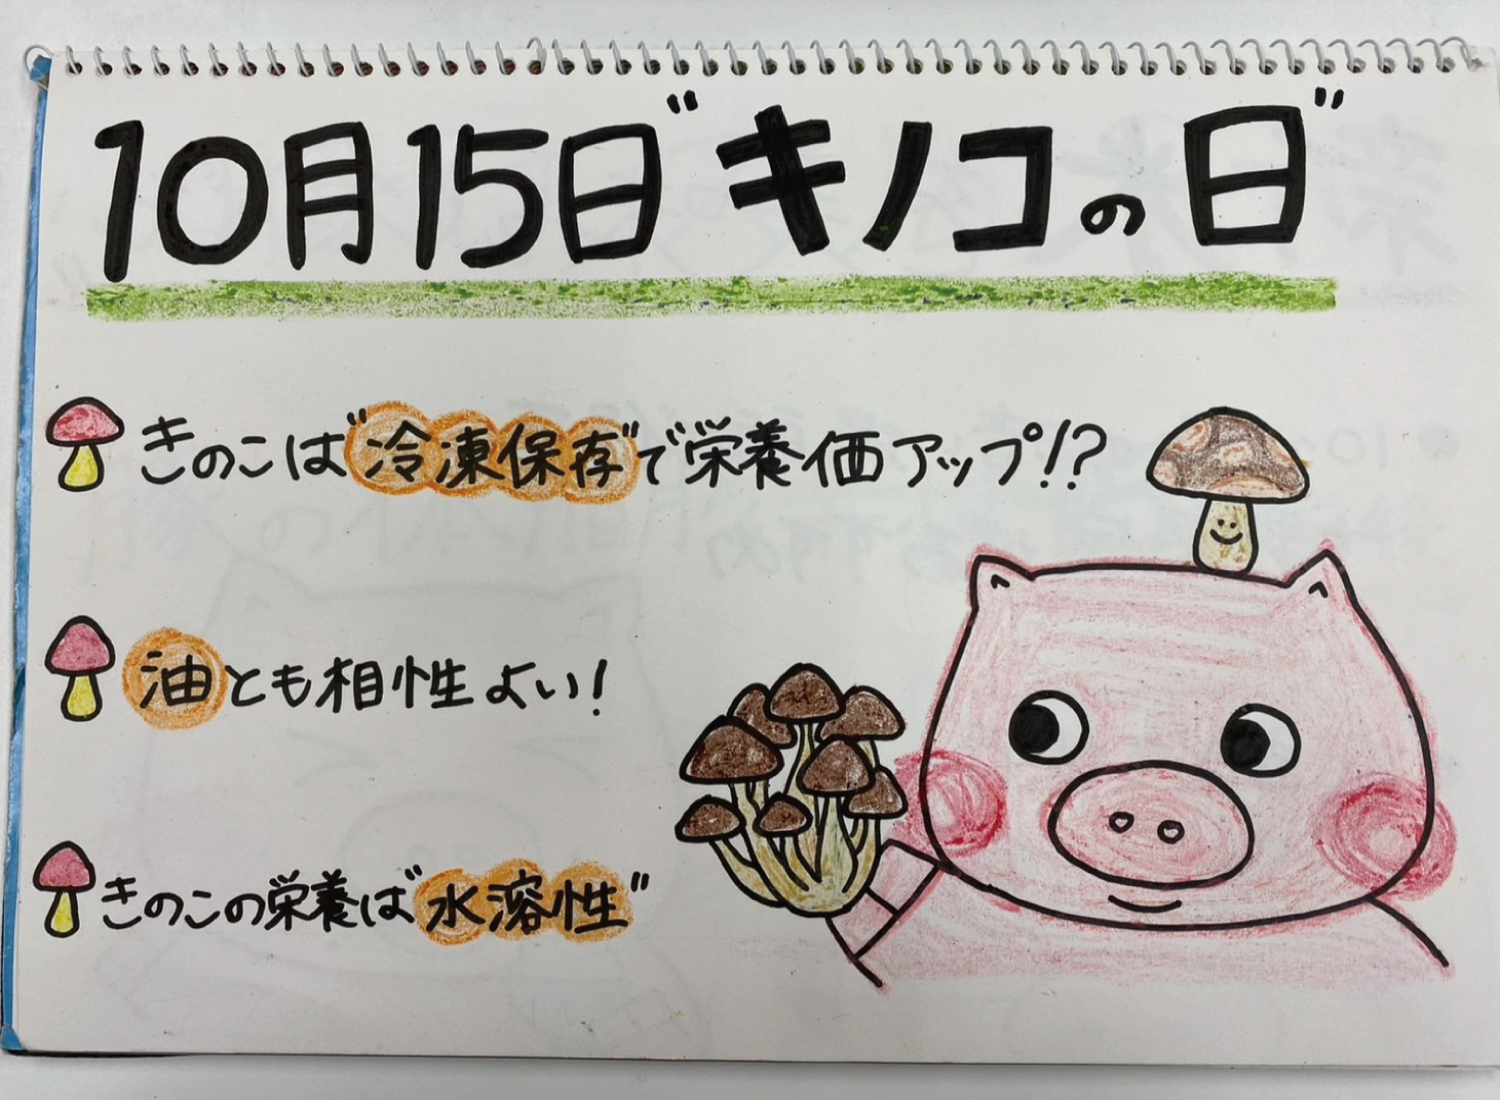 10月15日"キノコの日"
きのこは"冷凍保存"で栄養価アップ!?
油とも相性よい!
きのこの栄養は"水溶性"